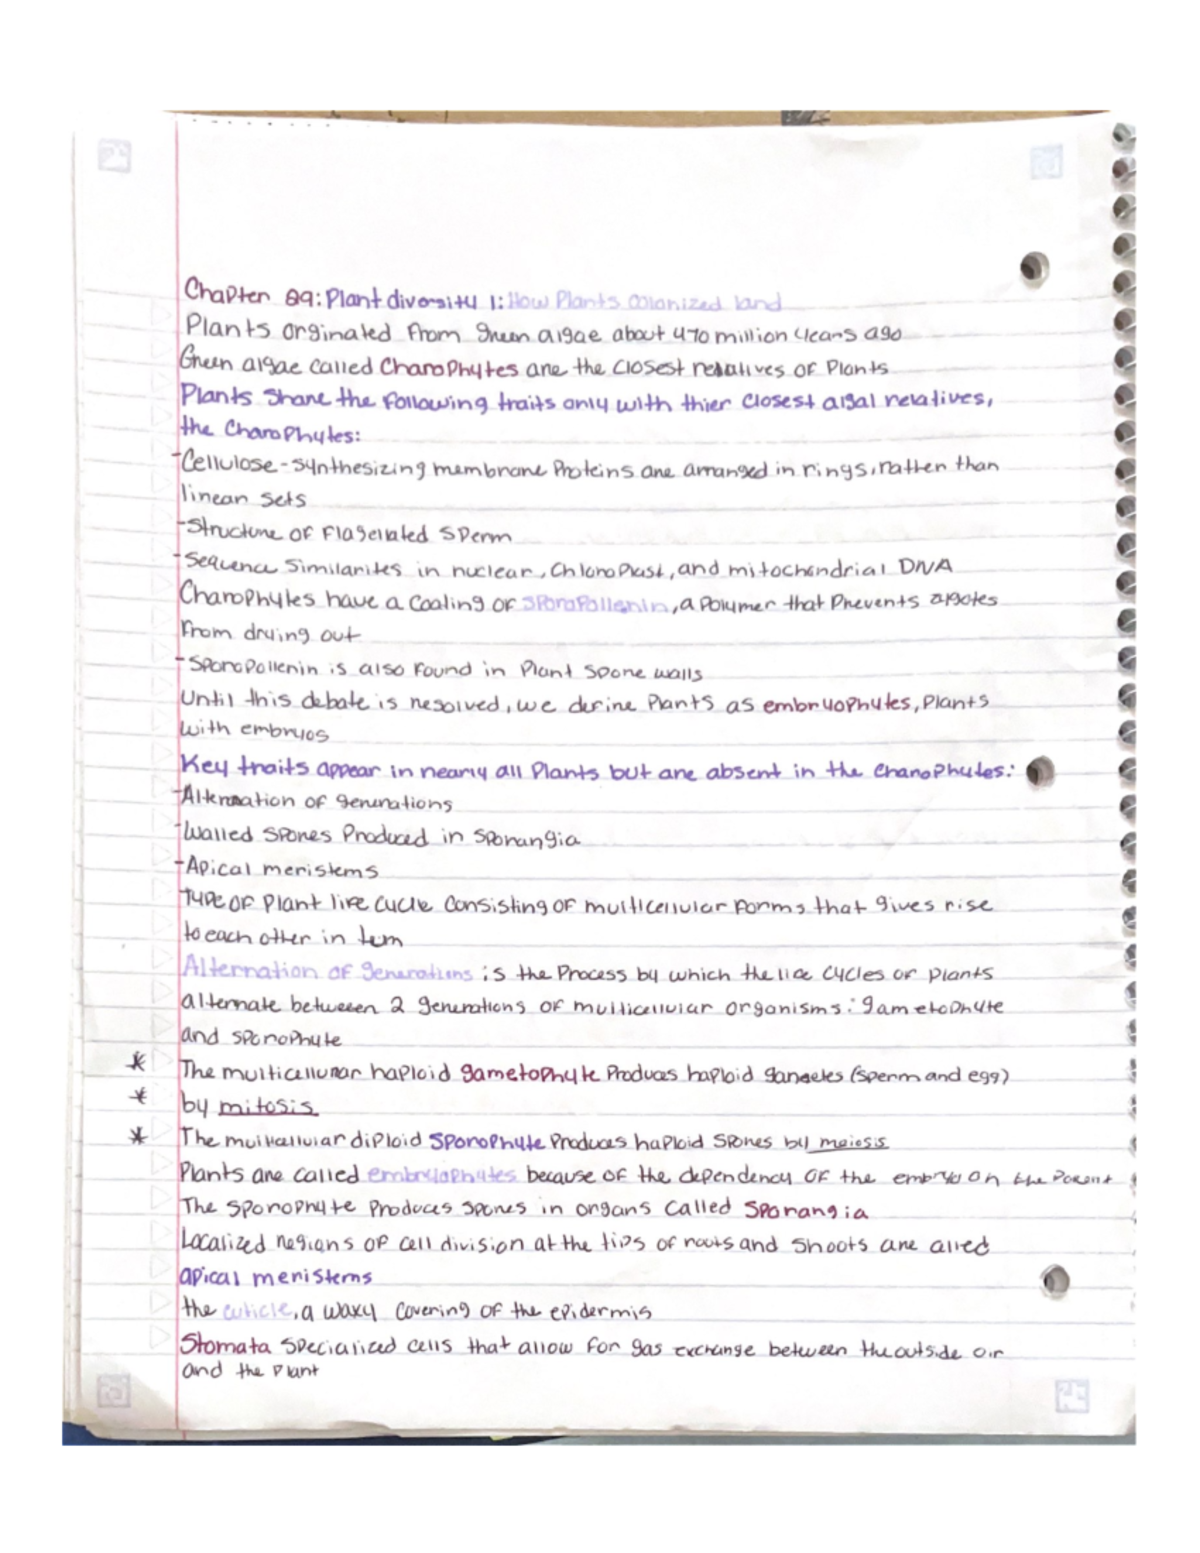 Chapter 29: Plant diversity 1: How Plants colonized land
Plants orginated from green algae about 470 million years ago
Green algae called Charophytes are the closest relatives of Plants
Plants share the following traits only with thier closest algal relatives,
the Charophytes:
-Cellulose-synthesizing membrane Proteins are arranged in rings, rather than
linear sets
-Structure of flagellated sperm
-Sequence similarites in nuclear, Chloroplast, and mitochondrial DNA
Charophytes have a coating of sporopollenin, a polymer that prevents zygotes
from drying out
-Sporopollenin is also found in Plant spore walls
Until this debate is resolved, we define Plants as embryophytes, Plants
with embryos
Key traits appear in nearly all Plants but are absent in the charophytes:
-Alternation of generations
-Walled spores Produced in sporangia
-Apical meristems
Type of plant life cycle consisting of multicellular forms that gives rise
to each other in turn
Alternation of generations is the Process by which the life cycles of plants
alternate between 2 generations of multicellular organisms: gametophyte
and sporophyte
* The multicellular haploid gametophyte Produces haploid gametes (sperm and egg)
* by mitosis
* The multicellular diploid sporophyte Produces haploid spores by meiosis
Plants are called embryophytes because of the dependency of the embryo on the Parent
The sporophyte produces spores in organs called Sporangia
Localized regions of cell division at the tips of roots and shoots are alled
apical meristems
the cuticle, a waxy covering of the epidermis
Stomata specialized cells that allow for gas exchange between the outside air
and the plant